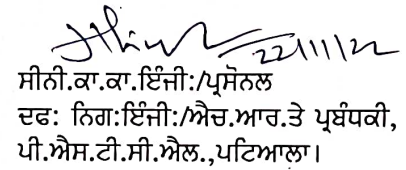 22/11/22
ਸੀਨੀ.ਕਾ.ਕਾ.ਇੰਜੀ:/ਪ੍ਰਸੋਨਲ
ਦਫ: ਨਿਗ:ਇੰਜੀ:/ਐਚ.ਆਰ.ਤੇ ਪ੍ਰਬੰਧਕੀ,
ਪੀ.ਐਸ.ਟੀ.ਸੀ.ਐਲ.,ਪਟਿਆਲਾ।